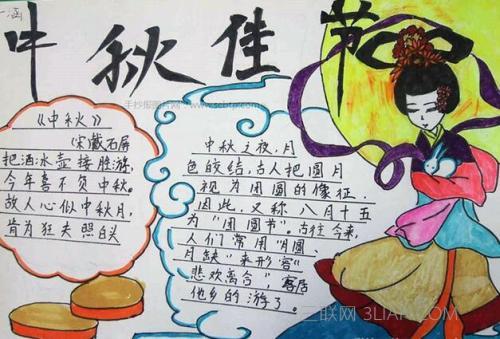 一涵
中秋佳节
手抄报图片网 www.scbtp.com
《中秋》
宋戴石屏
把酒冰壶接胜游,
今年喜不负中秋。
故人心似中秋月,
肯为狂夫照白头
中秋之夜,月
色皎结,古人把圆月
视为团圆的像征.
因此,又称八月十五
为"团圆节",古往今来,
人们常用"月圆
月缺"来形容"
悲欢离合",客居
他乡的游了。
三联网 3LIAN.COM